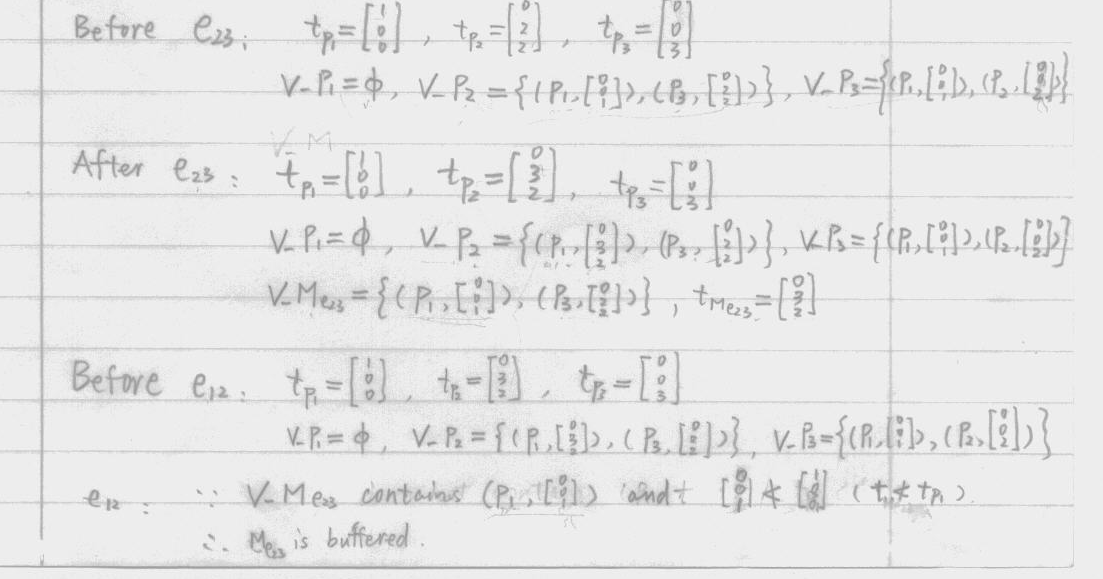 Before e23: tP1=[1 0 0], tP2=[0 2 2], tP3=[0 0 3]
V_P1=ϕ, V_P2={(P1,[0 0 1]),(P3,[0 2 2])}, V_P3={(P1,[0 0 1]),(P2,[0 0 2])}
V_M
After e23: tP1=[1 0 0], tP2=[0 3 2], tP3=[0 0 3]
V_P1=ϕ, V_P2={(P1,[0 3 2]),(P3,[0 2 2])}, V_P3={(P1,[0 0 1]),(P2,[0 0 2])}
V_Me23={(P1,[0 0 1]),(P3,[0 2 2])}, tMe23=[0 3 2]
Before e12: tP1=[1 0 0], tP2=[0 3 2], tP3=[0 0 3]
V_P1=ϕ, V_P2={(P1,[0 3 2]),(P3,[0 2 2])}, V_P3={(P1,[0 0 1]),(P2,[0 0 2])}
e12: ∵ V_Me23 contains (P1,[0 0 1]) and [0 0 1]≮[1 0 0] (t≮tP1).
∴ Me23 is buffered.